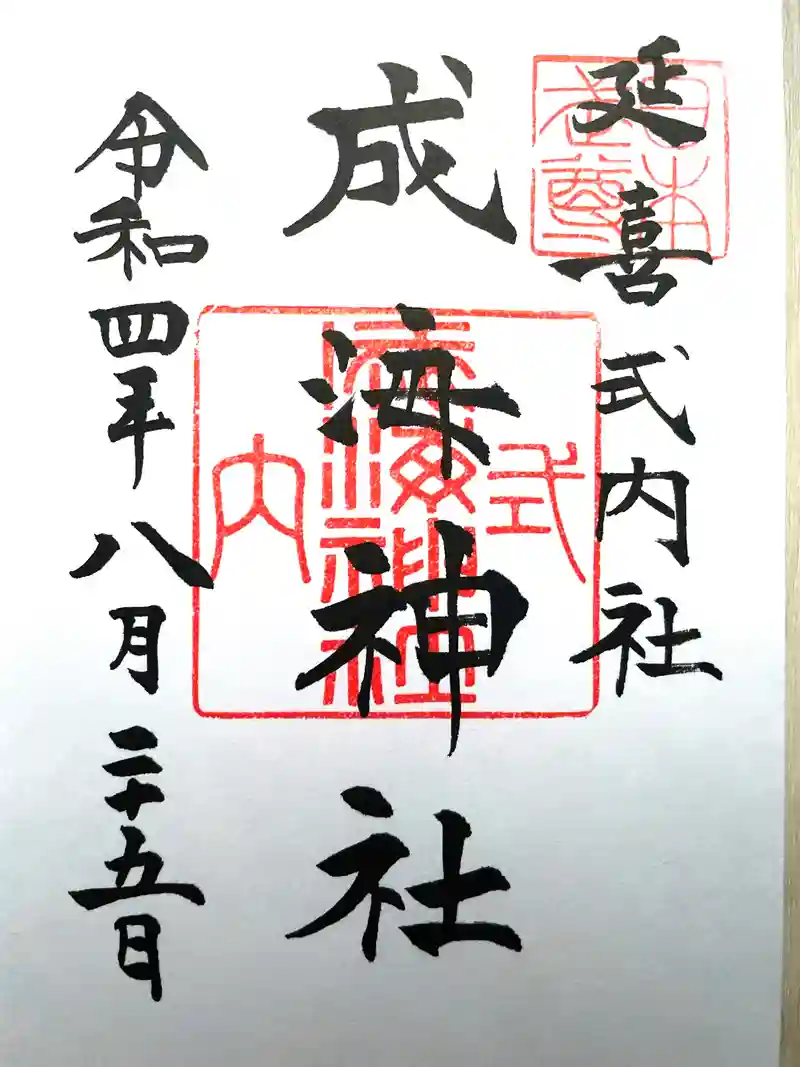 延喜式内社
成海神社
令和四年八月二十五日
式内
海神社